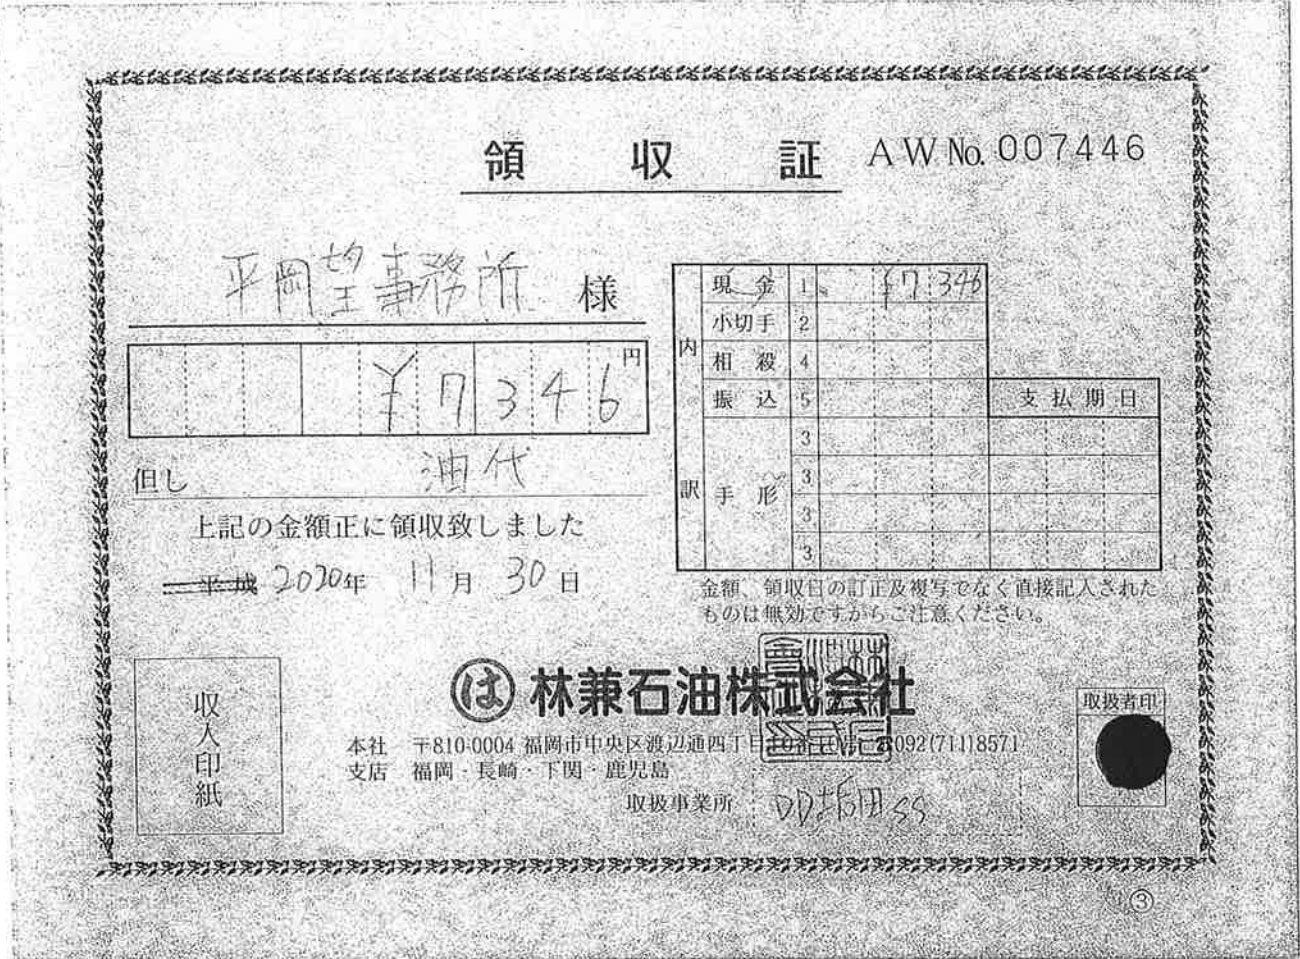 領収証 AW No. 007446
平岡望事務所 様
¥7346円
但し 油代
上記の金額正に領収致しました
平成 2020年 11月 30日
内訳
現金 1 ¥7,346
小切手 2
相殺 4
振込 5 支払期日
手形 3
3
3
3
金額、領収日の訂正及複写でなく直接記入された
ものは無効ですからご注意ください。
収入印紙
は 林兼石油株式会社
本社 〒810-0004 福岡市中央区渡辺通四丁目10番10号 092(711)8571
支店 福岡・長崎・下関・鹿児島
取扱事業所 SS
取扱者印
③